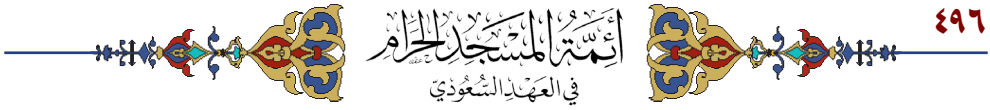 ٤٩٦
أَئِمَّةُ المَسْجِدِ الحَرَامِ
فِي العَهْدِ السُّعُودِيِّ